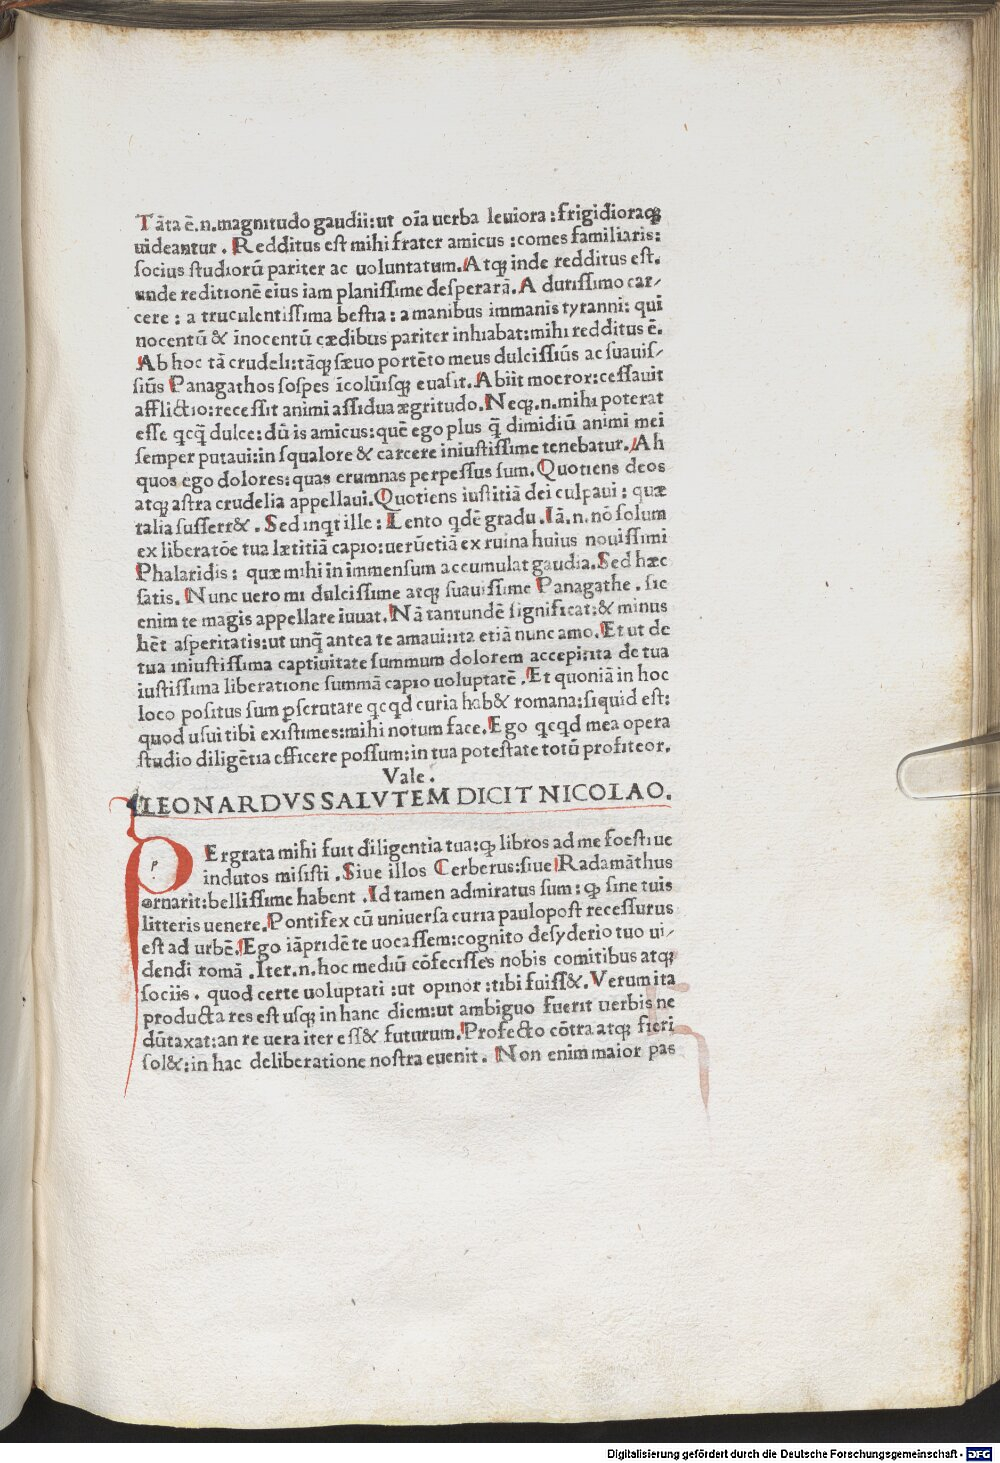 Tãta ẽ.n.magnitudo gaudii:ut oĩa uerba leuiora:frigidioraqꝫ
uideantur. Redditus est mihi frater amicus:comes familiaris:
socius studiorũ pariter ac uoluntatum. Atqꝫ inde redditus est.
unde reditionẽ eius iam planissime desperarã. A durissimo car/
cere: a truculentissima bestia: a manibus immanis tyranni: qui
nocentũ & ĩnocentũ cædibus pariter inhiabat:mihi redditus ẽ.
Ab hoc tã crudeli:tãqꝫ sæuo portẽto meus dulcissiũs ac suauis/
siũs Panagathos sospes ĩcolũisqꝫ euasit. Abiit moeror:cessauit
afflictio:recessit animi assidua ægritudo. Neqꝫ.n.mihi poterat
esse qcq̃ dulce: dũ is amicus:quẽ ego plus q̃ dimidiũ animi mei
semper putaui:in squalore & carcere iniustissime tenebatur. Ah
quos ego dolores:quas erumnas perpessus sum. Quotiens deos
atqꝫ astra crudelia appellaui. Quotiens iustitiã dei culpaui: quæ
talia sufferr&. Sed inqt ille: Lento qdẽ gradu. Iã.n.nõ solum
ex liberatõe tua lætitiã capio:uerũetiã ex ruina huius nouissimi
Phalaridis: quæ mihi in immensum accumulat gaudia. Sed hæc
satis. Nunc uero mi dulcissime atqꝫ suauissime Panagathe. sic
enim te magis appellare iuuat. Nã tantundẽ significat:& minus
hẽt asperitatis:ut unq̃ antea te amaui:ita etiã nunc amo. Et ut de
tua iniustissima captiuitate summum dolorem accepi:ita de tua
iustissima liberatione summã capio uoluptatẽ. Et quoniã in hoc
loco positus sum ꝑscrutare qcqd curia hab& romana:siquid est:
quod usui tibi existimes:mihi notum face. Ego qcqd mea opera
studio diligẽtia efficere possum:in tua potestate totũ profiteor.
Vale.
LEONARDVS SALVTEM DICIT NICOLAO.
p Ergrata mihi fuit diligentia tua:qꝫ libros ad me foestiue
indutos misisti. Siue illos Cerberus:siue Radamãthus
ornarit:bellissime habent. Id tamen admiratus sum: qꝫ sine tuis
litteris uenere. Pontifex cũ uniuersa curia paulopost recessurus
est ad urbẽ. Ego iãpridẽ te uocassem:cognito desyderio tuo ui/
dendi romã. Iter.n.hoc mediũ cõfecisses nobis comitibus atqꝫ
sociis. quod certe uoluptati:ut opinor:tibi fuiss&. Verum ita
producta res est usqꝫ in hanc diem:ut ambiguo fuerit uerbis ne
dũtaxat:an re uera iter ess& futurum. Profecto cõtra atqꝫ fieri
sol&:in hac deliberatione nostra euenit. Non enim maior pas
Digitalisierung gefördert durch die Deutsche Forschungsgemeinschaft - DFG